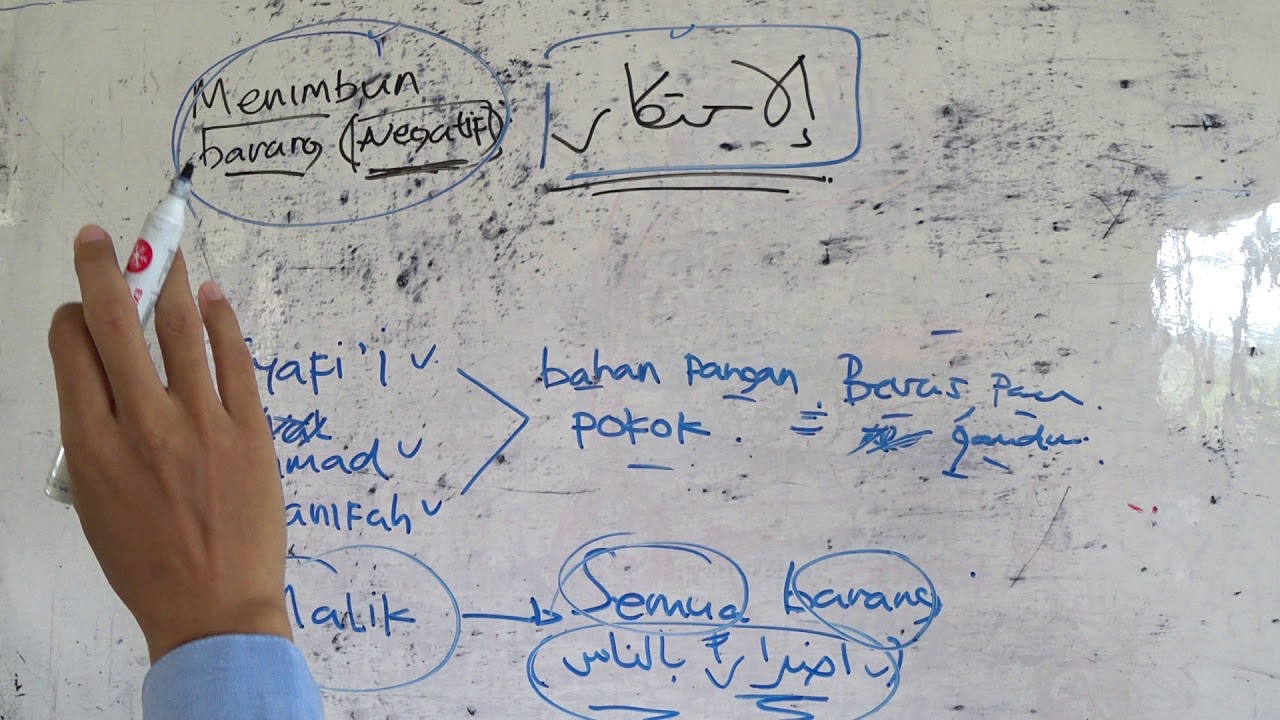 Menimbun
barang (Negatif)
الاحتكار
yafi'i
mad
anifah
bahan pangan
pokok. = Beras
gandum.
Malik
Semua barang
اضرارا بالناس